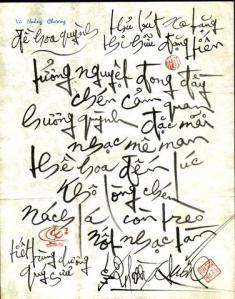 Vũ Hoàng Chương
đề hoa quỳnh
thủ bút và tặng
thi hữu Đặng Tiến
tưởng nguyệt đong đầy
chén cảm quan
hương quỳnh đặc mãi
nhạc mê man
thế hoa đến lúc
khô lòng chén
nách lá còn treo
nốt nhạc tàn
tiết trùng dương
quý sửu